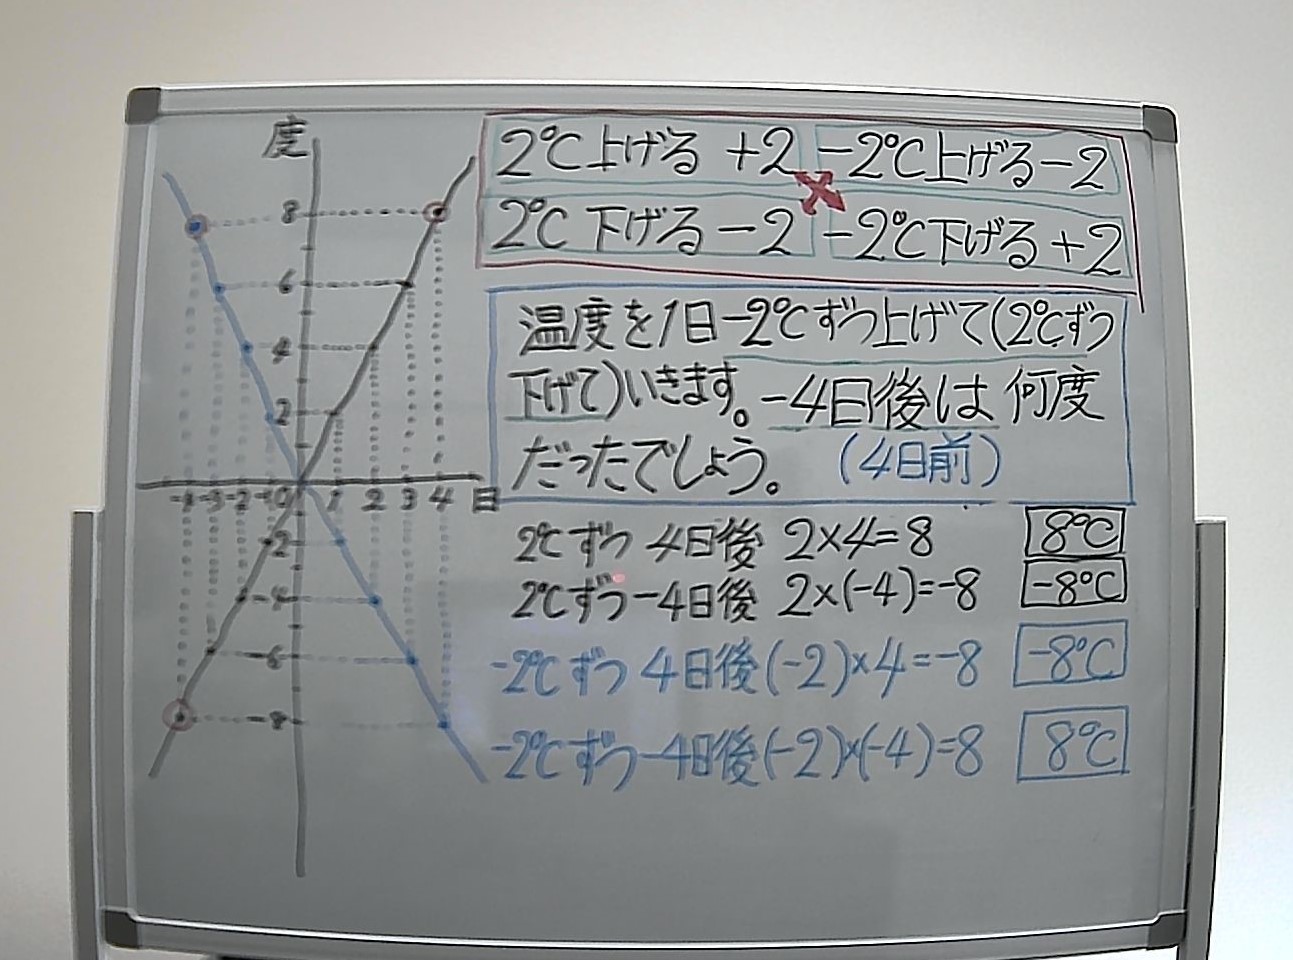 度
8
6
4
2
-4 -3 -2 -1 0 1 2 3 4 日
-2
-4
-6
-8
2℃上げる +2 -2℃上げる-2
2℃下げる-2 -2℃下げる+2
温度を1日-2℃ずつ上げて(2℃ずつ
下げて)いきます。-4日後は何度
だったでしょう。 (4日前)
2℃ずつ 4日後 2×4=8 8℃
2℃ずつ-4日後 2×(-4)=-8 -8℃
-2℃ずつ 4日後(-2)×4=-8 -8℃
-2℃ずつ-4日後(-2)×(-4)=8 8℃